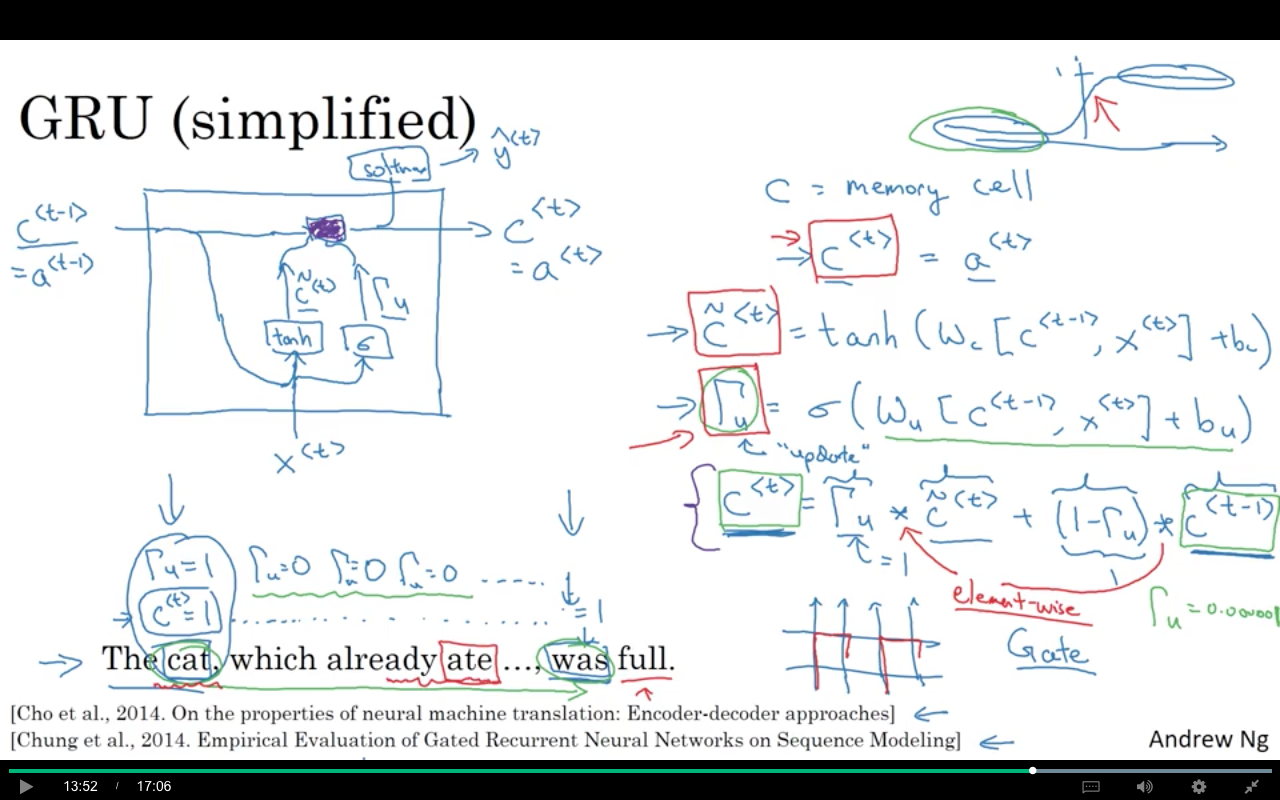 GRU (simplified)
softmax
ŷ<t>
c<t-1>
= a<t-1>
c<t>
= a<t>
c̃<t>
Γu
tanh
σ
x<t>
c = memory cell
c<t> = a<t>
c̃<t> = tanh (Wc [c<t-1>, x<t>] + bc)
Γu = σ (Wu [c<t-1>, x<t>] + bu)
"update"
c<t> = Γu * c̃<t> + (1-Γu) * c<t-1>
= 1
element-wise
Γu = 0.000001
Gate
Γu=1 Γu=0 Γu=0 Γu=0 .....
c<t>=1 ............ = 1
The cat, which already ate …, was full.
[Cho et al., 2014. On the properties of neural machine translation: Encoder-decoder approaches]
[Chung et al., 2014. Empirical Evaluation of Gated Recurrent Neural Networks on Sequence Modeling]
Andrew Ng
13:52 / 17:06